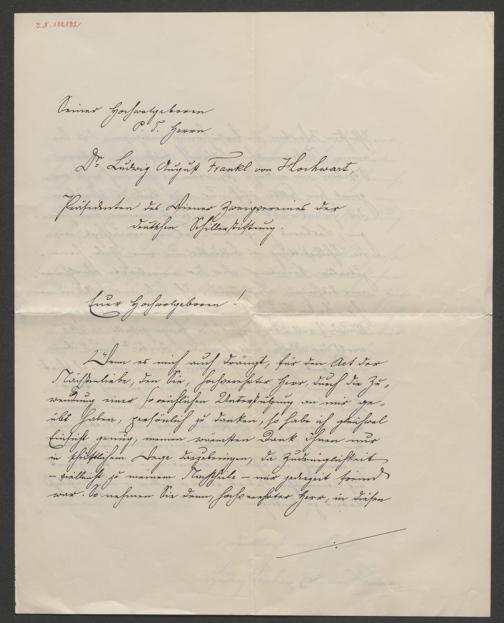 I.N. 102892
Seiner Hochwolgeboren
P. T. Herrn
Dr Ludwig August Frankl von Hochwart,
Präsidenten des Wiener Zweigvereines der
deutschen Schillerstiftung.
Euer Hochwolgeboren!
Wenn es mich auch drängt, für den Act der
Nächstenliebe, den Sie, hochverehrter Herr, durch die Zu-
wendung einer so reichlichen Unterstützung an mir ge-
übt haben, persönlich zu danken, so habe ich gleichwol
Einsicht genug, meinen wärmsten Dank Ihnen nur
in schriftlichem Wege darzubringen, da Zudringlichkeit
– vielleicht zu meinem Nachtheile – mir jederzeit fremd
war. So nehmen Sie denn, hochverehrter Herr, in diesen